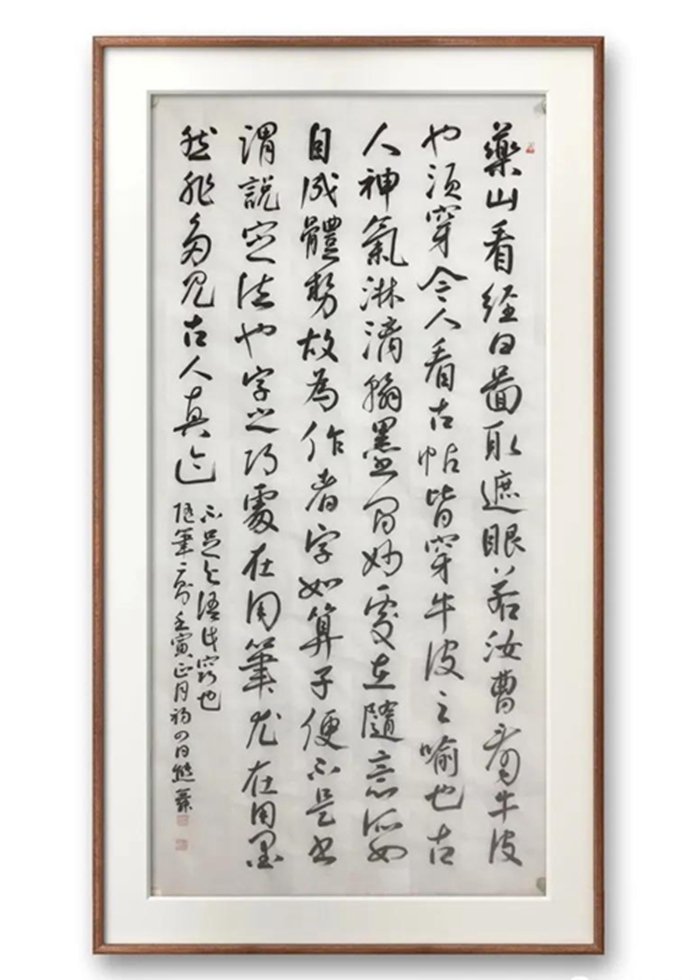 藥山看经曰圖取遮眼若汝曹看牛皮
也须穿今人看古帖皆穿牛皮之喻也古
人神氣淋漓翰墨间妙處在隨意所如
自成體势故為作者字如算子便不是书
謂說定法也字之巧處在用筆尤在用墨
然非多见古人真迹
不足与语此窍也
随筆一 壬寅正月初四日